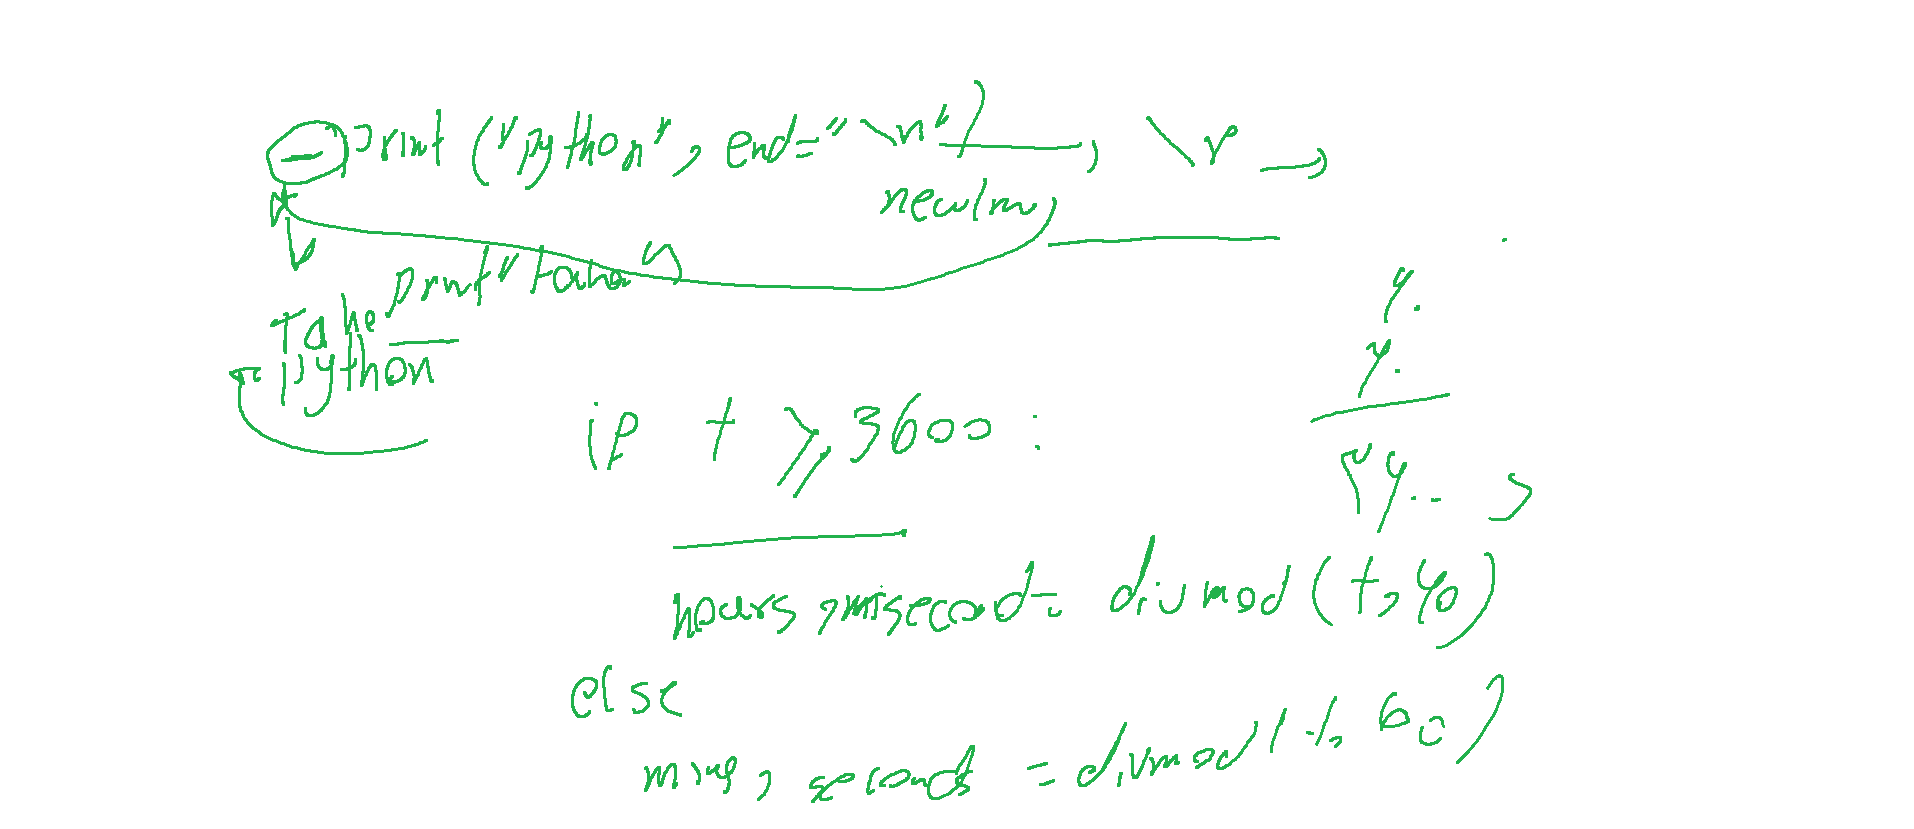 print ("python", end="\n") \r
newline
print "Taha"
Taha
python
۶۰
۶۰
۳۶۰۰
if t >= 3600 :
hours, misecond = divmod (t, 60)
else
mins, seconds = divmod (t, 60)